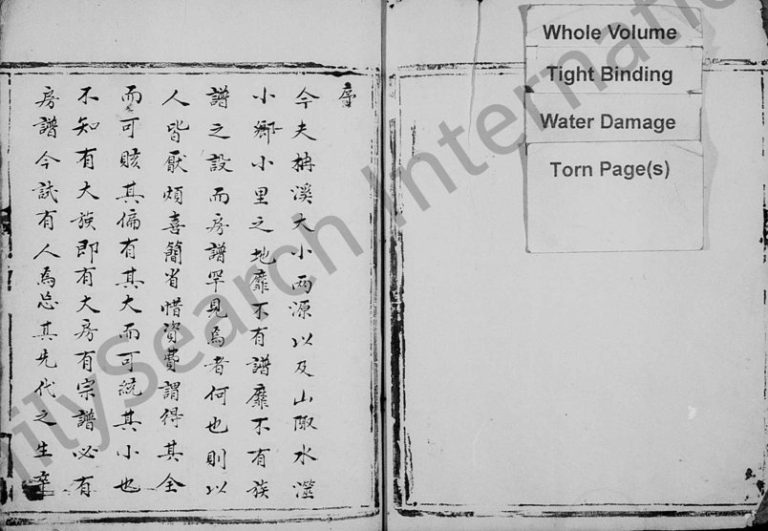 序
今夫楠溪大小兩源以及山陬水澨
小鄉小里之地靡不有譜靡不有族
譜之設而房譜罕見焉者何也則以
人皆厭煩喜簡省惜資費謂得其全
而可賅其偏有其大而可統其小也
不知有大族即有大房有宗譜必有
房譜今試有人焉忘其先代之生卒
Whole Volume
Tight Binding
Water Damage
Torn Page(s)
ilySearch Internatio